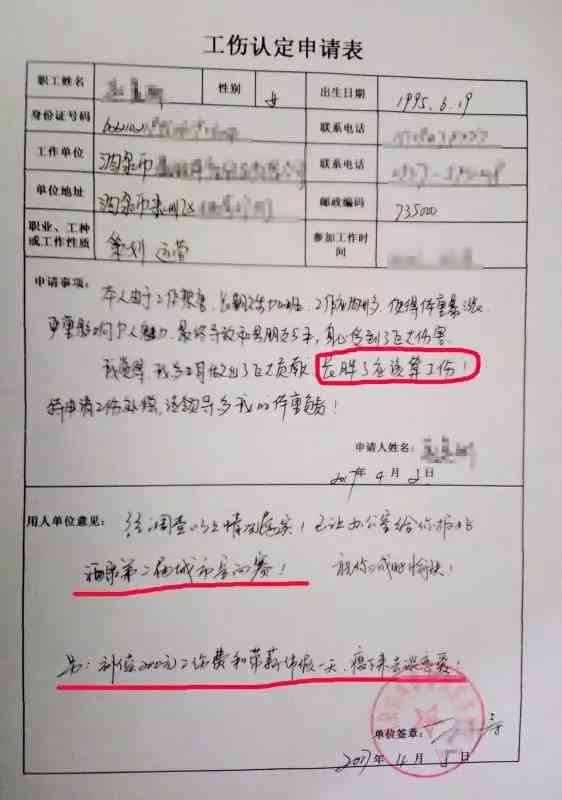 工伤认定申请表
职工姓名 性别 女 出生日期 1995.6.19
身份证号码 联系电话
工作单位 酒泉市 联系电话
单位地址 酒泉市肃州区 邮政编码 735000
职业、工种或工作性质 策划 运营 参加工作时间
申请事项:
本人由于工作 长期 加班 工作 使得体重暴涨
严重影响个人魅力 最终导致和男朋友分手,身心受到了巨大伤害
我觉得 我为公司做出了巨大贡献 长胖了应该算工伤!
特申请工伤补偿,请领导为我的体重负责!
申请人姓名:
2017年4月2日
用人单位意见:
经调查以上情况属实!已让办公室给你报名
酒泉第二届城市 赛! 祝你减肥愉快!
另:补偿200元工伤费和带薪休假一天,瘦下来去谈恋爱!
单位签章:
2017年4月5日